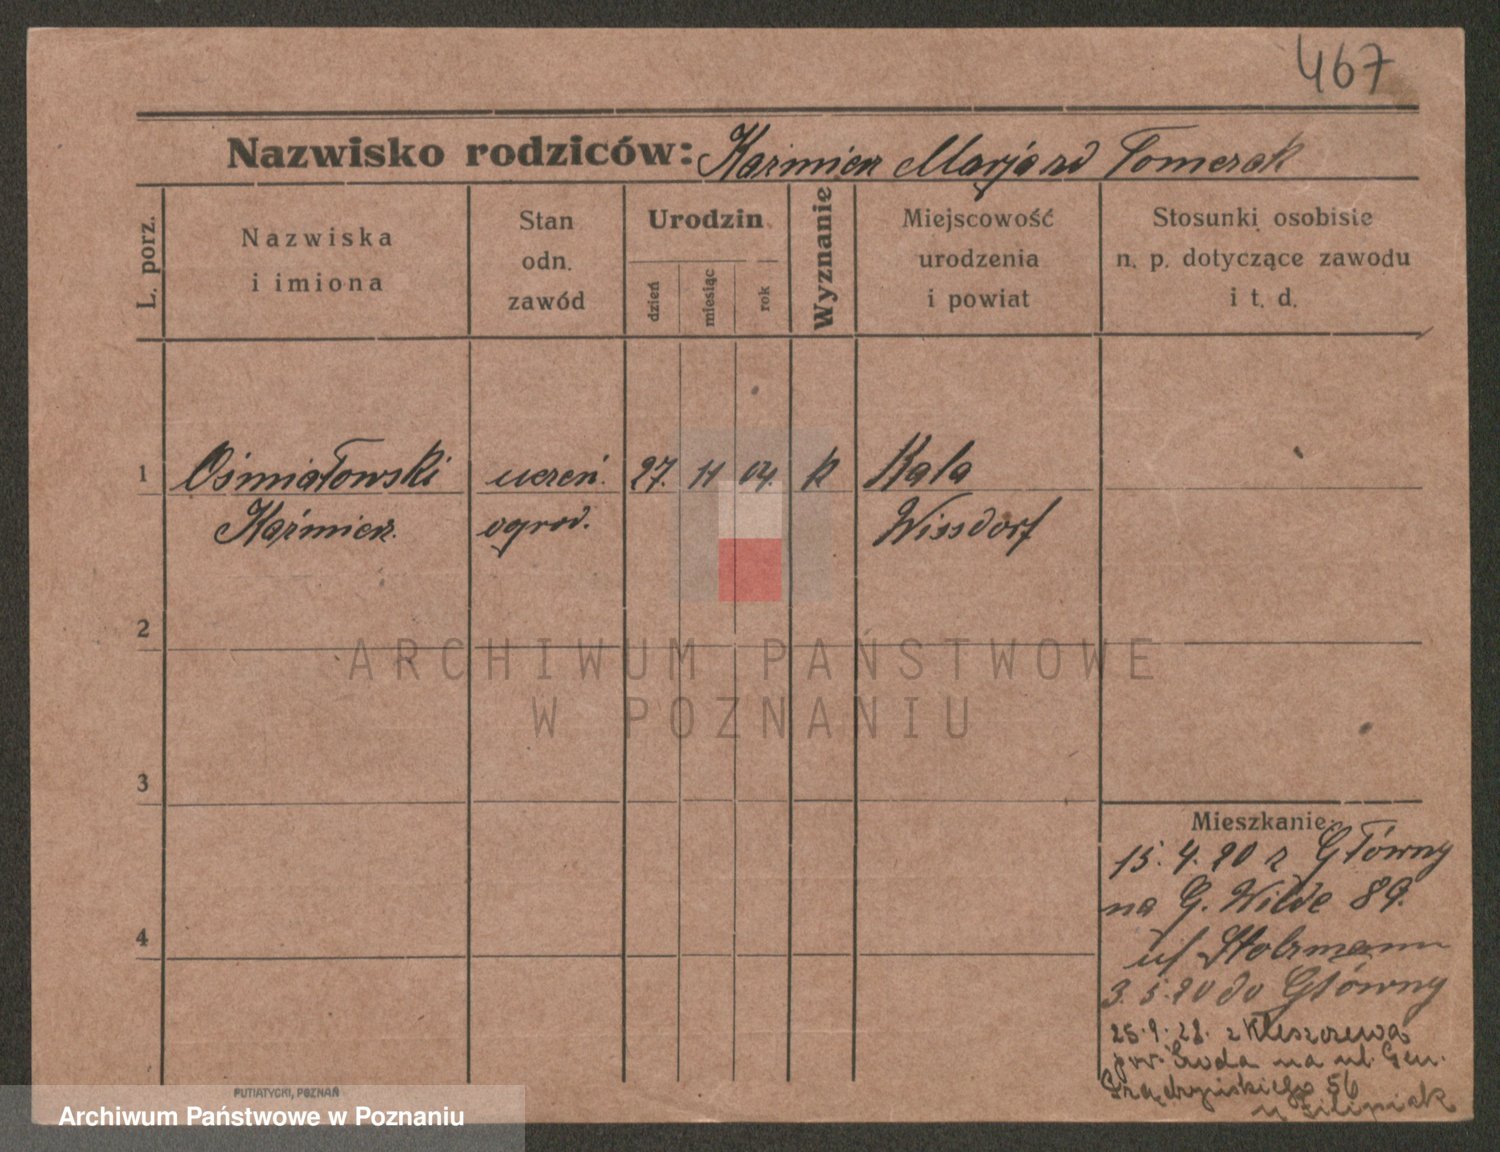 467
Nazwisko rodziców: Kaźmierz Marjand Tomczak
L. porz.
Nazwiska
i imiona
Stan
odn.
zawód
Urodzin
dzień
miesiąc
rok
Wyznanie
Miejscowość
urodzenia
i powiat
Stosunki osobiste
n. p. dotyczące zawodu
i t. d.
1 Ośmiałowski uczeń. 27. 11 04. k
Kaźmierz. ogrod. Wissdorf
2
ARCHIWUM PAŃSTWOWE
W POZNANIU
3
4
Mieszkanie:
15. 4. 20 z Główny
na G. Wilde 89.
Stolzmann
3. 5. 20 do Główny
25. 9. 28. z Kleszczewa
pow. Środa na ul. Gen.
Prądzyńskiego 56
u Filipiak
PUTIATYCKI, POZNAŃ
Archiwum Państwowe w Poznaniu